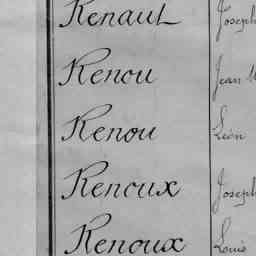 Renaut Joseph
Renou Jean
Renou Léon
Renoux Joseph
Renoux Louis